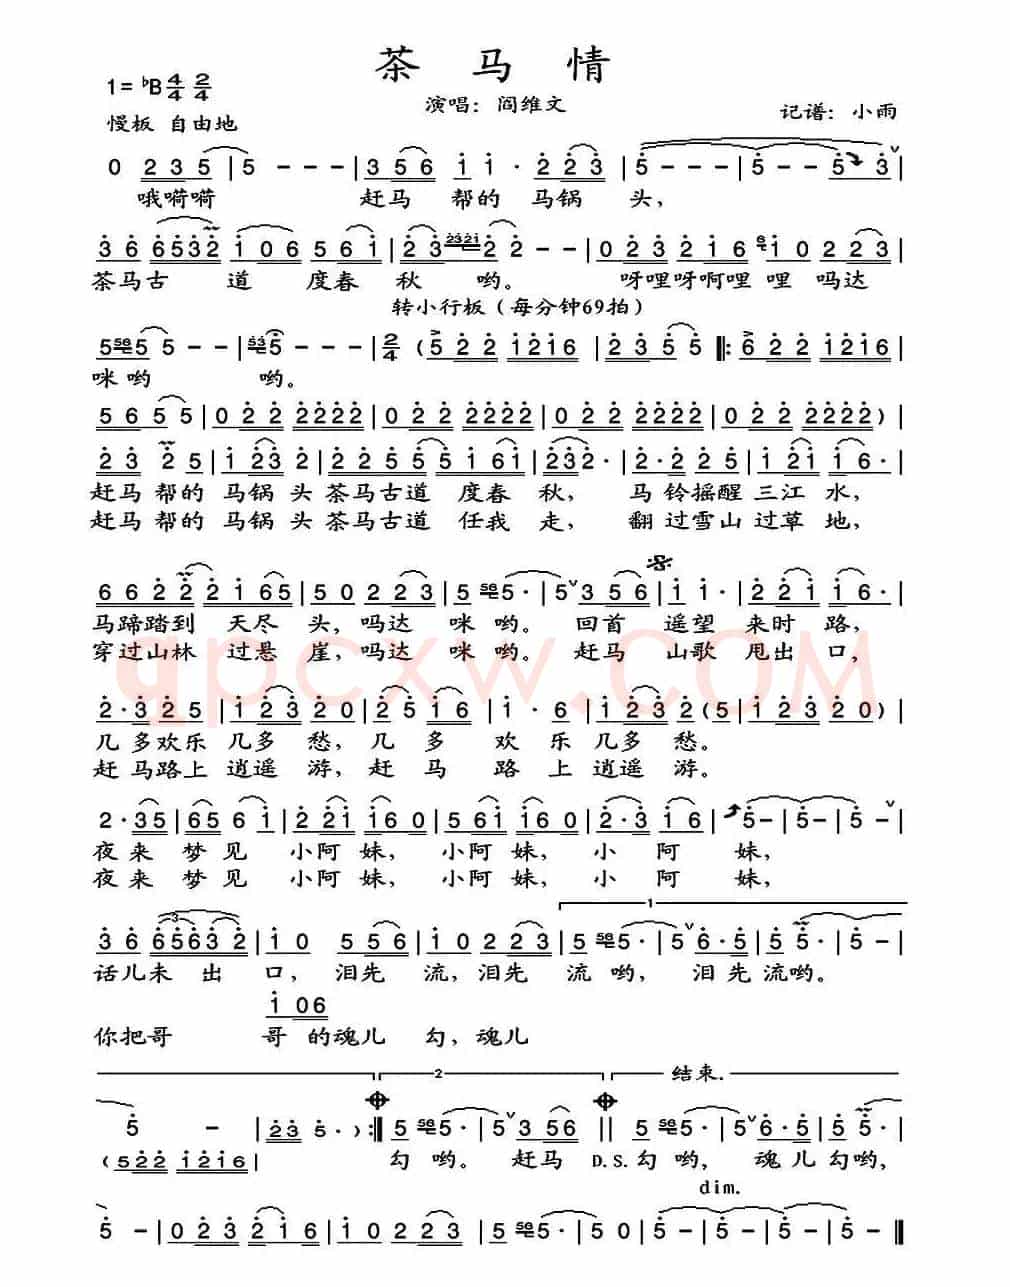 茶 马 情
1= ♭B 4/4 2/4
演唱：阎维文
慢板 自由地
记谱：小雨
0 2 3 5 | 5 - - - | 3 5 6 i i · 2 2 3 | 5 - - - | 5 - - 5 3 |
哦嗬嗬 赶马 帮的 马锅 头，
3 6 6532 i 0 6 5 6 i | 2 3 2321 2 2 - - | 0 2 3 2 i 6 6 i 0 2 2 3 |
茶马古 道 度春 秋 哟。 呀哩呀啊哩 哩 吗达
转小行板（每分钟69拍）
5 56 5 5 - - | 53 5 - - - | 2/4 ( 5 2 2 i2i6 | 2 3 5 5 |: 6 2 2 i2i6 |
咪 哟 哟。
5 6 5 5 | 0 2 2 2222 | 0 2 2 2222 | 0 2 2 2222 | 0 2 2 2222 ) |
2 3 2 5 | i 23 2 | 2 2 5 5 5 i 6i | 232· | 2·2 2 5 | i 2i i 6· |
赶马 帮的 马锅 头 茶马古道 度春 秋， 马 铃摇醒 三江 水，
赶马 帮的 马锅 头 茶马古道 任我 走， 翻 过雪山 过草 地，
6 6 2 2 2 i 65 | 5 0 2 2 3 | 5 56 5· | 5 3 56 | i i· | 2 2i i6· |
马蹄踏到 天尽 头，吗达 咪 哟。 回首 遥望 来时 路，
穿过山林 过悬 崖，吗达 咪 哟。赶马 山歌 甩出 口，
qpcxw.com
2·3 2 5 | i 23 2 0 | 2 5 i6 | i· 6 | i 23 2 (5 | i 23 2 0) |
几 多欢乐 几多 愁，几 多 欢 乐 几多 愁。
赶 马路上 逍遥 游，赶 马 路 上 逍遥 游。
2·35 | 65 6 i | 2 2i i6 0 | 5 6i i6 0 | 2·3 i 6 | 5 - | 5 - | 5 - |
夜 来 梦 见 小阿 妹， 小阿 妹， 小 阿 妹，
夜 来 梦 见 小阿 妹， 小阿 妹， 小 阿 妹，
1
3 6 6563 2 | i 0 5 5 6 | i 0 2 2 3 | 5 56 5· | 5 6·5 | 5 5· | 5 - |
话儿未 出 口，泪先 流，泪先 流 哟， 泪先 流哟。
i 06
你把哥 哥 的魂儿 勾，魂儿
2 结束.
5 - | 2 3 5·) :| 5 56 5· | 5 3 56 || 5 56 5· | 5 6·5 | 5 5· |
(5 2 2 i2i6 | 勾 哟。 赶马 D.S.勾 哟， 魂 儿勾哟，
dim.
5 - | 0 2 3 2 i 6 | i 0 2 2 3 | 5 56 5· | 5 - | 5 - | 5 - | 5 - ||